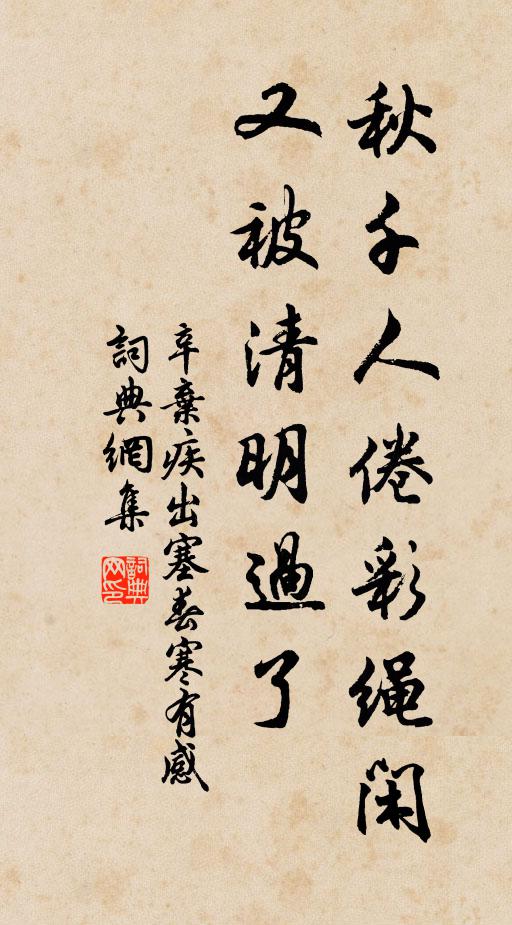 秋千人倦彩绳闲
又被清明過了
辛棄疾出塞春寒有感
詞典網集
詞典网印